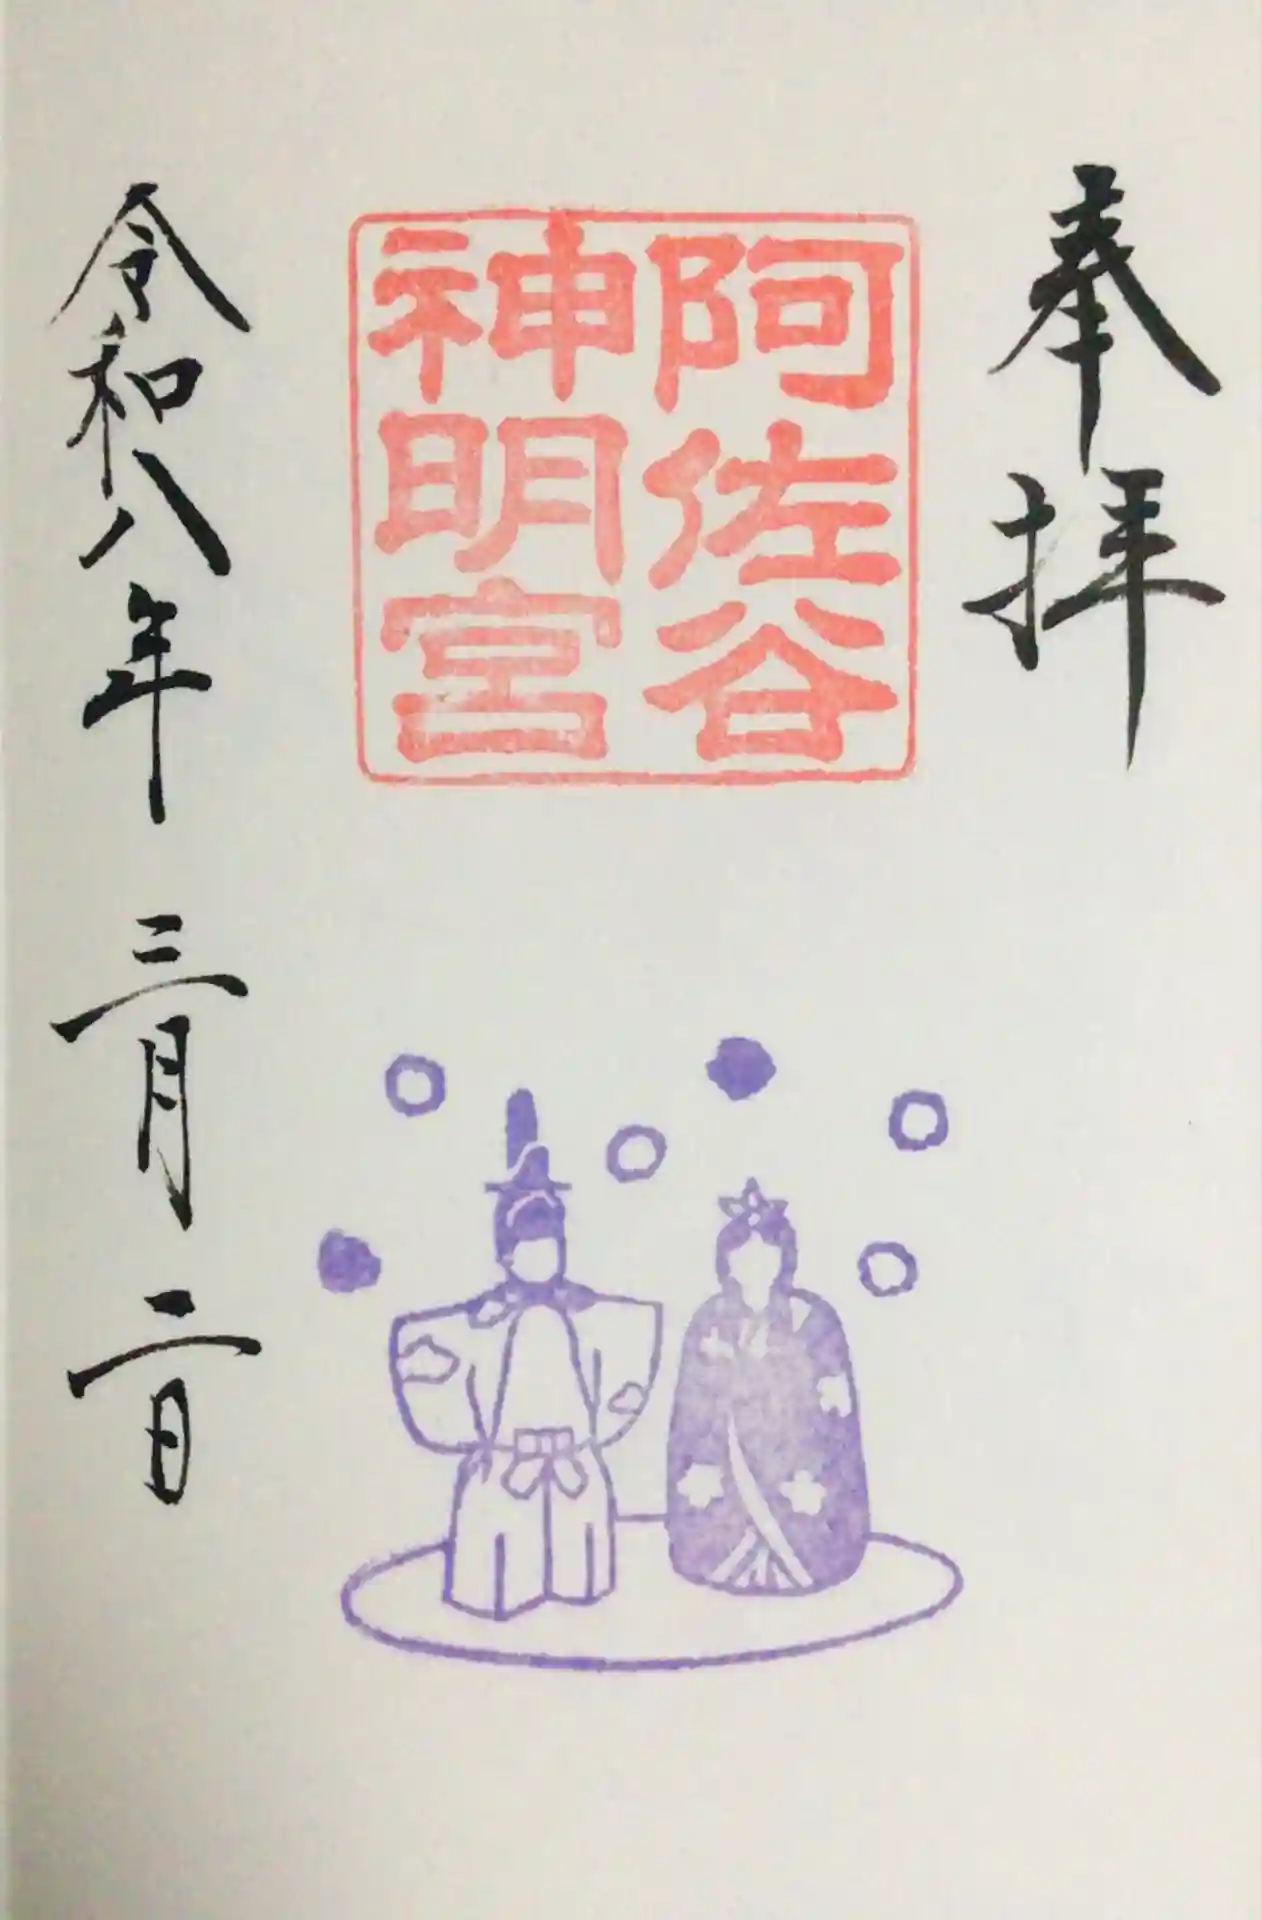 奉拝
阿佐谷
神明宮
令和八年 三月 二日